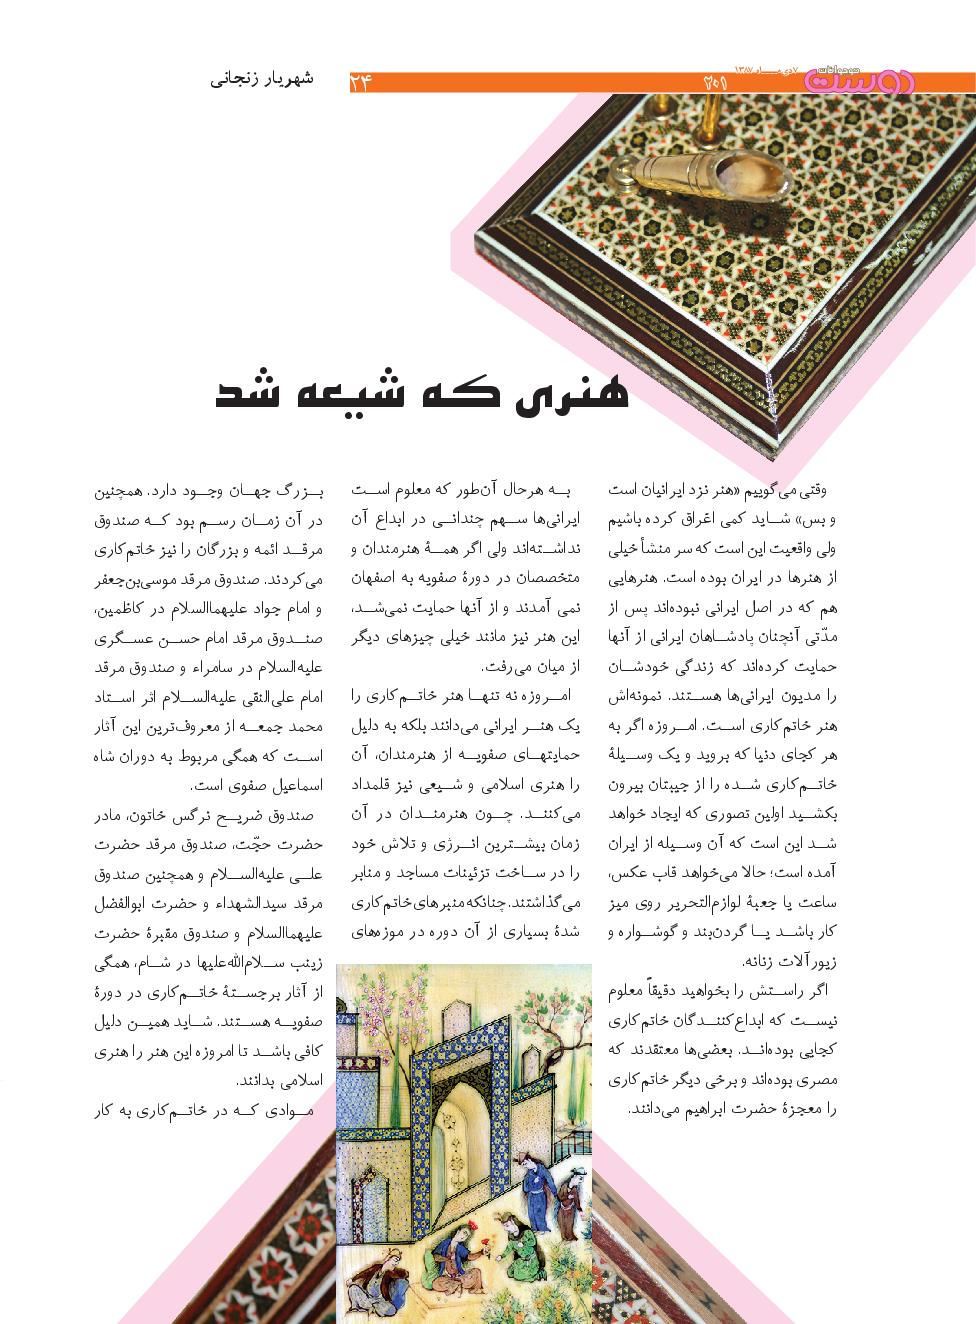 دوست
نوجوانان
۷ دی مـــاه ۱۳۸۷
۲۰۱
۲۴
شهریار زنجانی
هنری که شیعه شد
وقتی می‌گوییم «هنر نزد ایرانیان است
و بس» شـــاید کمی اغراق کرده باشیم
ولی واقعیت این است که سر منشأ خیلی
از هنرها در ایران بوده است. هنرهایی
هم که در اصل ایرانی نبوده‌اند پس از
مدّتی آنچنان پادشـاهان ایرانی از آنها
حمایت کرده‌اند که زندگی خودشـــان
را مدیون ایرانی‌ها هســـتند. نمونه‌اش
هنر خاتم‌کاری اســـت. امـــروزه اگر به
هر کجای دنیا که بروید و یک وســـیلهٔ
خاتـــم‌کاری شـــده را از جیبتان بیرون
بکشـــید اولین تصوری که ایجاد خواهد
شـــد این است که آن وسـیله از ایران
آمده است؛ حالا می‌خواهد قاب عکس،
ساعت یا جعبهٔ لوازم‌التحریر روی میز
کار باشـــد یـــا گردن‌بند و گوشـــواره و
زیورآلات زنانه.
اگر راســـتش را بخواهید دقیقاً معلوم
نیســـت که ابداع‌کننـــدگان خاتم‌کاری
کجایی بوده‌انـــد. بعضی‌ها معتقدند که
مصری بوده‌اند و برخی دیگر خاتم‌کاری
را معجزهٔ حضرت ابراهیم می‌دانند.
بـــه هرحال آن‌طور که معلوم اســـت
ایرانی‌ها ســـهم چندانـــی در ابداع آن
نداشـــته‌اند ولی اگر همـــهٔ هنرمندان و
متخصصان در دورهٔ صفویه به اصفهان
نمی آمدند و از آنها حمایت نمی‌شـــد،
این هنر نیز مانند خیلی چیزهای دیگر
از میان می‌رفت.
امـــروزه نه تنهـــا هنر خاتـــم‌کاری را
یک هنـــر ایرانی می‌دانند بلکه به دلیل
حمایتهـــای صفویـــه از هنرمندان، آن
را هنری اسلامی و شـــیعی نیز قلمداد
می‌کننـــد. چـــون هنرمنـــدان در آن
زمان بیشـــترین انـــرژی و تلاش خود
را در ســـاخت تزئینات مساجد و منابر
می‌گذاشتند. چنانکه منبرهای خاتم‌کاری
شدهٔ بسیاری از آن دوره در موزه‌های
بـــزرگ جهـــان وجـــود دارد. همچنین
در آن زمـــان رســـم بود کـــه صندوق
مرقـــد ائمه و بزرگان را نیز خاتم‌کاری
می‌کردند. صندوق مرقد موسی‌بن‌جعفر
و امام جواد علیهماالسلام در کاظمین،
صنـــدوق مرقد امام حســـن عســـگری
علیه‌السلام در سامراء و صندوق مرقد
امام علی‌النقی علیه‌الســـلام اثر اســـتاد
محمد جمعـــه از معروف‌ترین این آثار
اســـت که همگی مربوط به دوران شاه
اسماعیل صفوی است.
صندوق ضریـــح نرگس خاتون، مادر
حضرت حجّت، صندوق مرقد حضرت
علـــی علیه‌الســـلام و همچنین صندوق
مرقد سیدالشهداء و حضرت ابوالفضل
علیهماالسلام و صندوق مقبرهٔ حضرت
زینب ســـلام‌الله‌علیها در شـــام، همگی
از آثار برجستهٔ خاتـــم‌کاری در دورهٔ
صفویـــه هستند. شـــاید همیـــن دلیل
کافی باشـــد تا امروزه این هنر را هنری
اسلامی بدانند.
مـــوادی کـــه در خاتـــم‌کاری به کار